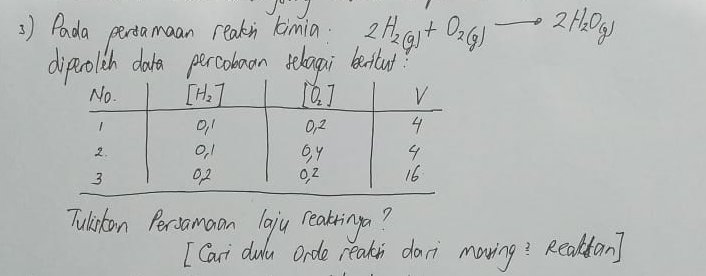 3) Pada persamaan reaksi kimia. 2H₂(g) + O₂(g) → 2H₂O(g)
diperoleh data percobaan sebagai berikut :
No. [H₂] [O₂] V
1 0,1 0,2 4
2. 0,1 0,4 4
3 0,2 0,2 16
Tuliskan Persamaan laju reaksinya ?
[Cari dulu Orde reaksi dari masing² Reaktan]